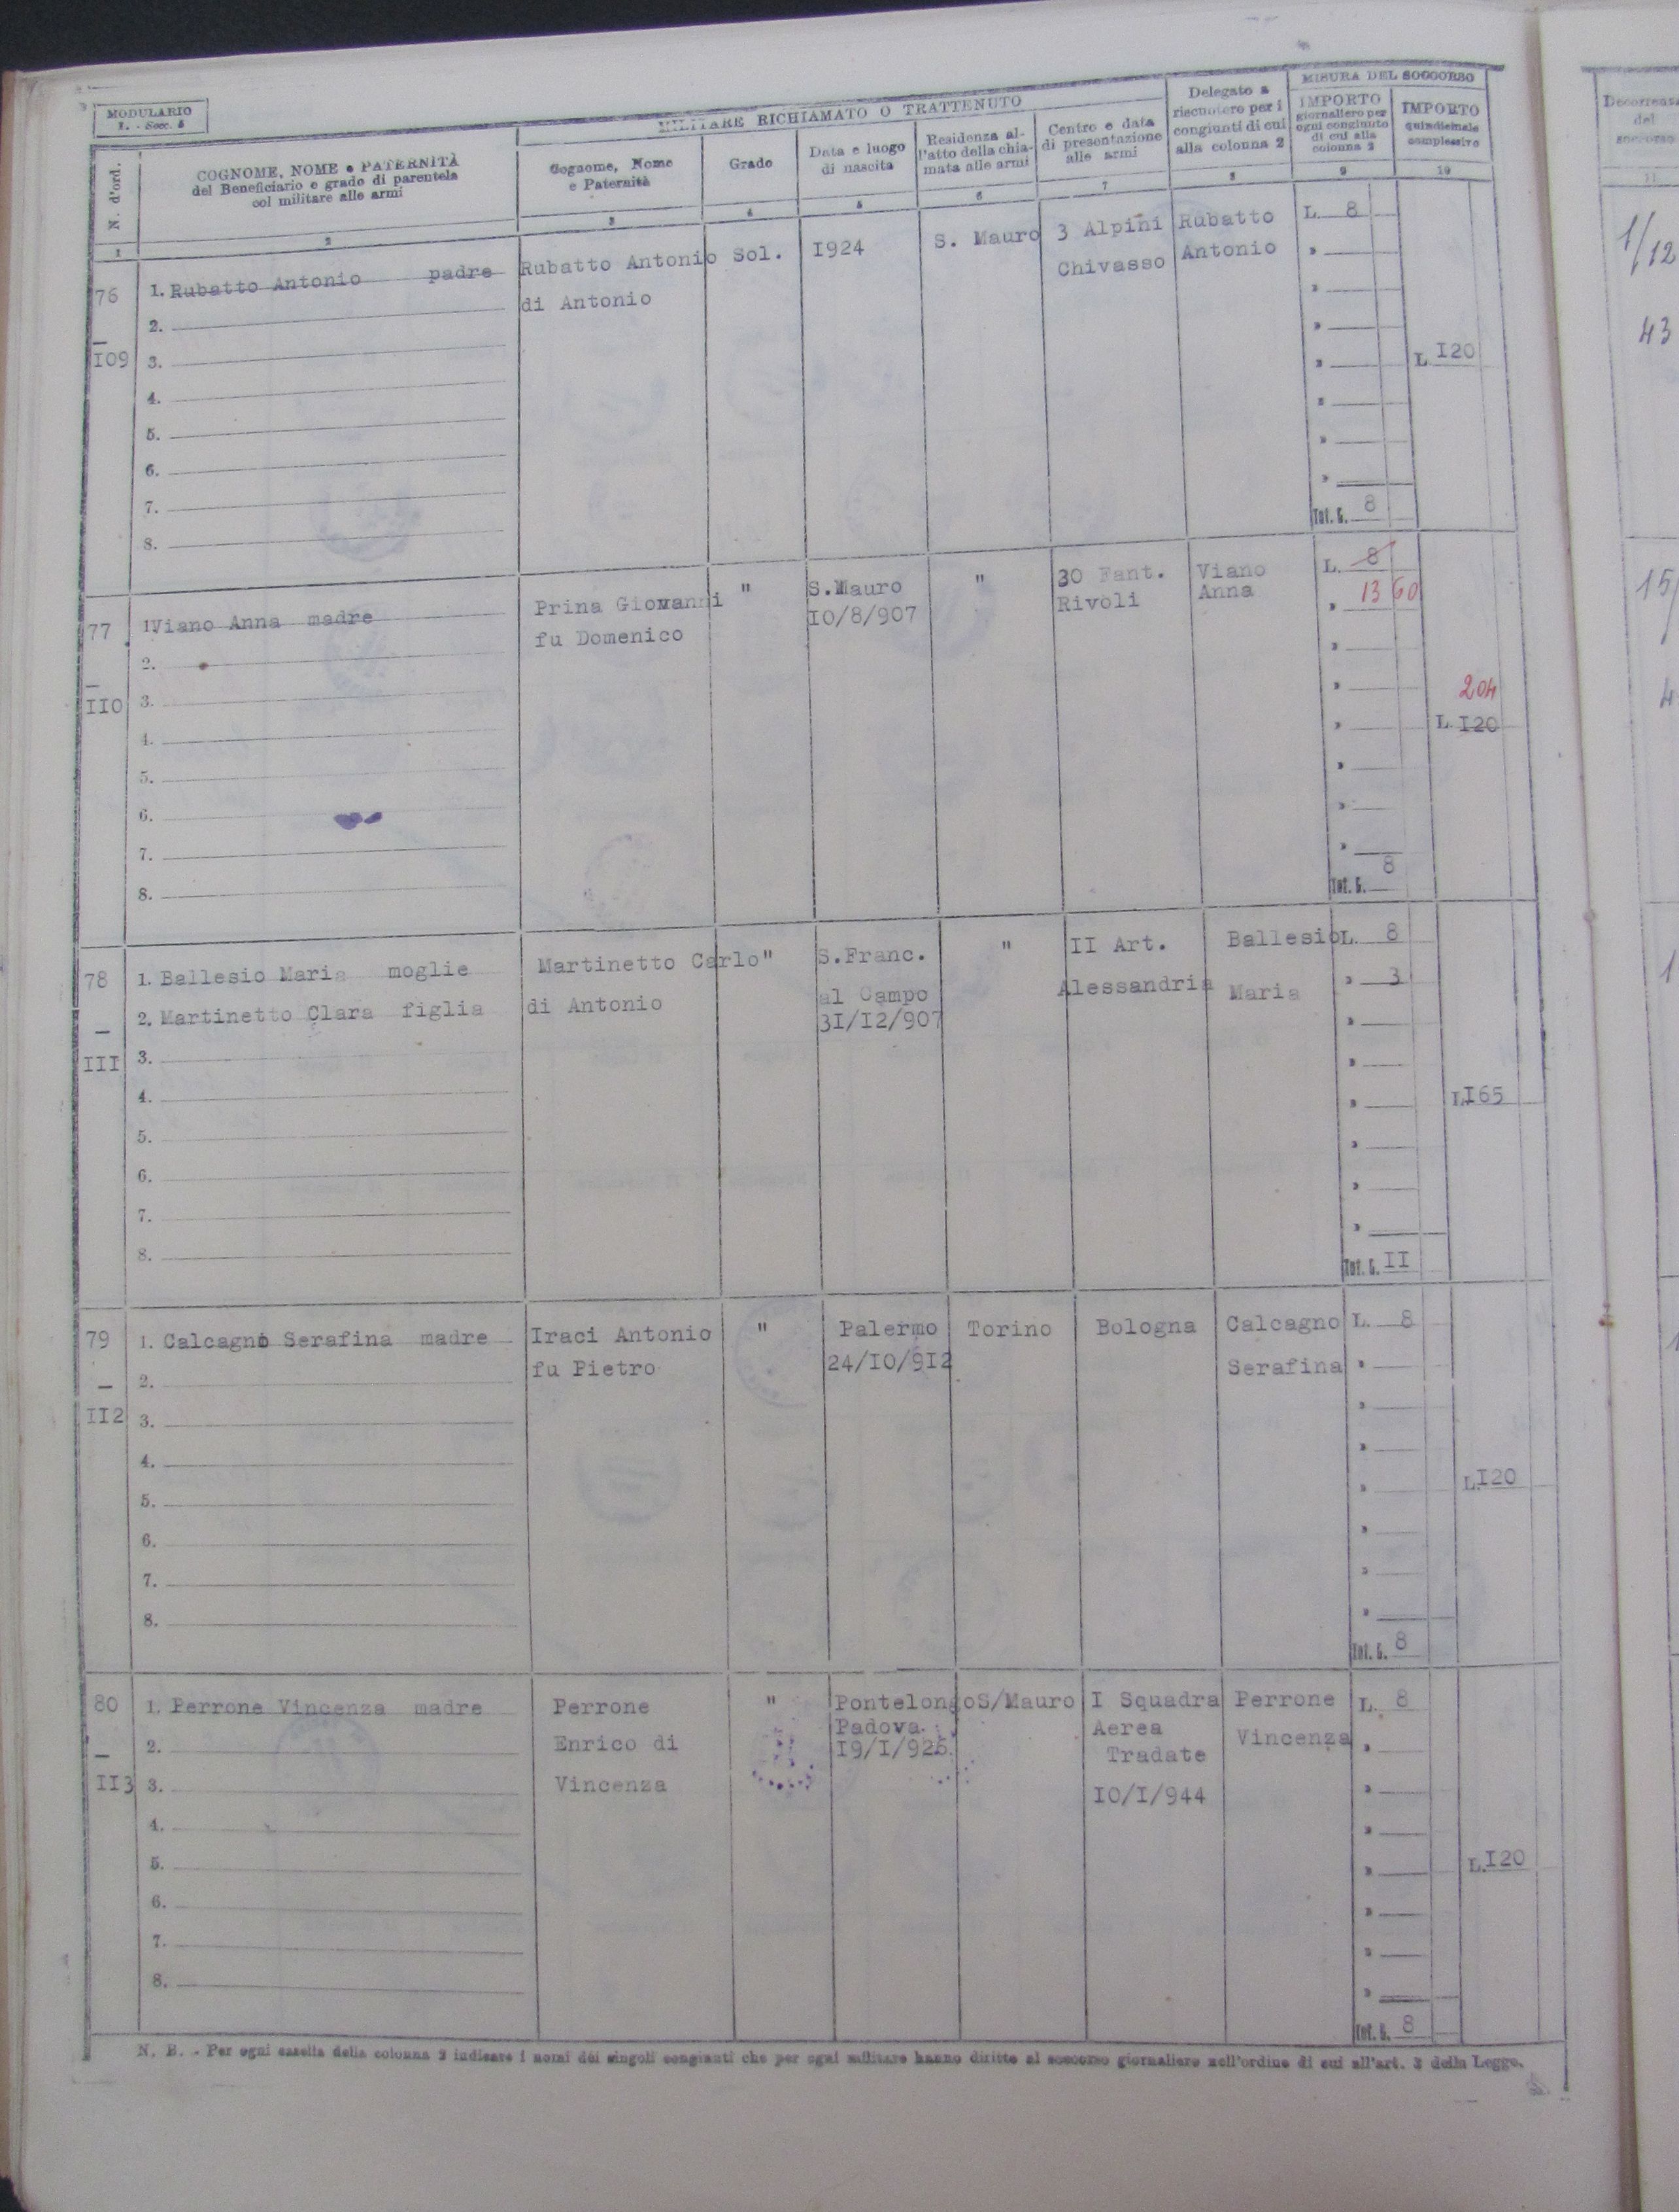 MODULARIO
I. - Secc. 5
MILITARE RICHIAMATO O TRATTENUTO
MISURA DEL SOCCORSO
N. d'ord.
COGNOME, NOME e PATERNITÀ
del Beneficiario e grado di parentela
col militare alle armi
Cognome, Nome
e Paternità
Grado
Data e luogo
di nascita
Residenza al-
l'atto della chia-
mata alle armi
Centro e data
di presentazione
alle armi
Delegato a
riscuotere per i
congiunti di cui
alla colonna 2
IMPORTO
giornaliero per
ogni congiunto
di cui alla
colonna 2
IMPORTO
quindicinale
complessivo
Decorrenza
del
soccorso
1 2 3 4 5 6 7 8 9 10 11
76
—
I09
1. Rubatto Antonio padre
2.
3.
4.
5.
6.
7.
8.
Rubatto Antonio
di Antonio
Sol.
I924
S. Mauro
3 Alpini
Chivasso
Rubatto
Antonio
L. 8
Tot. G. 8
L. I20
1/12
43
77
—
II0
1. Viano Anna madre
2.
3.
4.
5.
6.
7.
8.
Prina Giovanni
fu Domenico
"
S.Mauro
I0/8/907
"
30 Fant.
Rivoli
Viano
Anna
L. 8
" 13 60
Tot. G. 8
204
L. I20
15/
4
78
—
III
1. Ballesio Maria moglie
2. Martinetto Clara figlia
3.
4.
5.
6.
7.
8.
Martinetto Carlo
di Antonio
"
S.Franc.
al Campo
3I/I2/907
"
II Art.
Alessandria
Ballesio
Maria
L. 8
" 3
Tot. G. II
L. I65
1
79
—
II2
1. Calcagno Serafina madre
2.
3.
4.
5.
6.
7.
8.
Iraci Antonio
fu Pietro
"
Palermo
24/I0/9I2
Torino
Bologna
Calcagno
Serafina
L. 8
Tot. G. 8
L. I20
80
—
II3
1. Perrone Vincenza madre
2.
3.
4.
5.
6.
7.
8.
Perrone
Enrico di
Vincenza
"
Pontelongo
Padova
I9/I/925
S/Mauro
I Squadra
Aerea
Tradate
I0/I/944
Perrone
Vincenza
L. 8
Tot. G. 8
L. I20
N. B. - Per ogni casella della colonna 2 indicare i nomi dei singoli congiunti che per ogni militare hanno diritto al soccorso giornaliero nell'ordine di cui all'art. 3 della Legge.